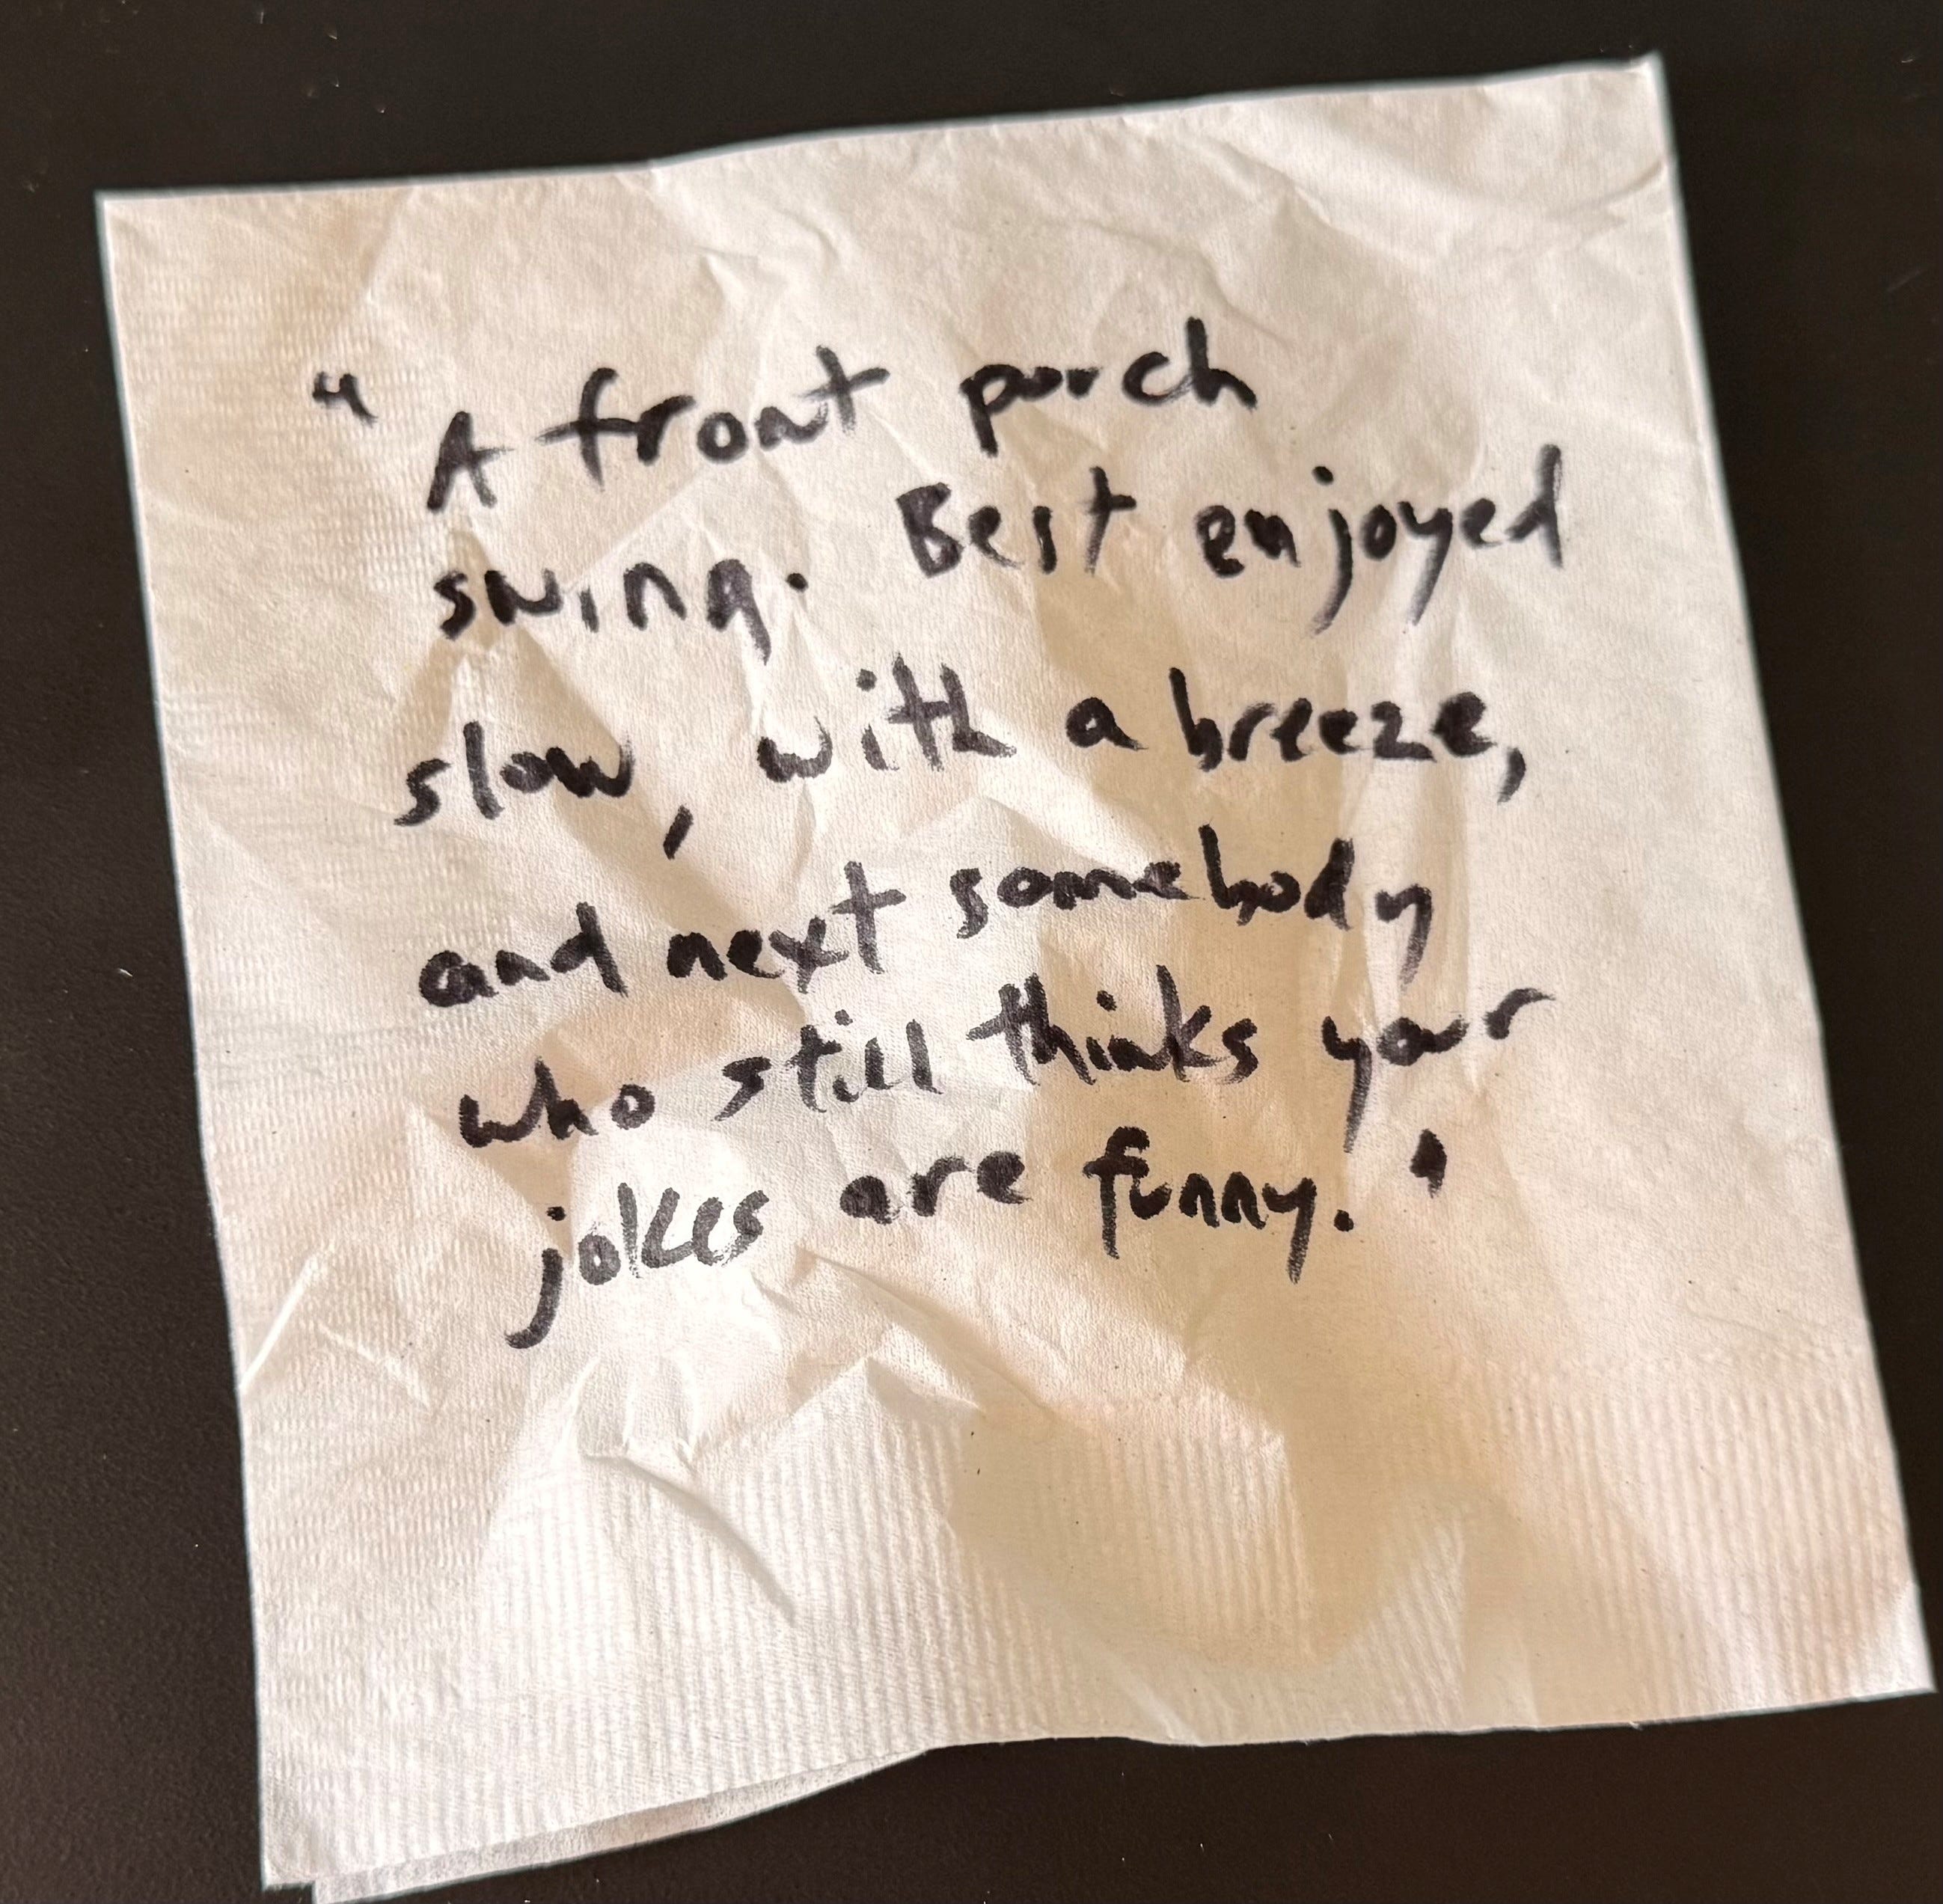 "A front porch
swing. Best enjoyed
slow, with a breeze,
and next somebody
who still thinks your
jokes are funny."